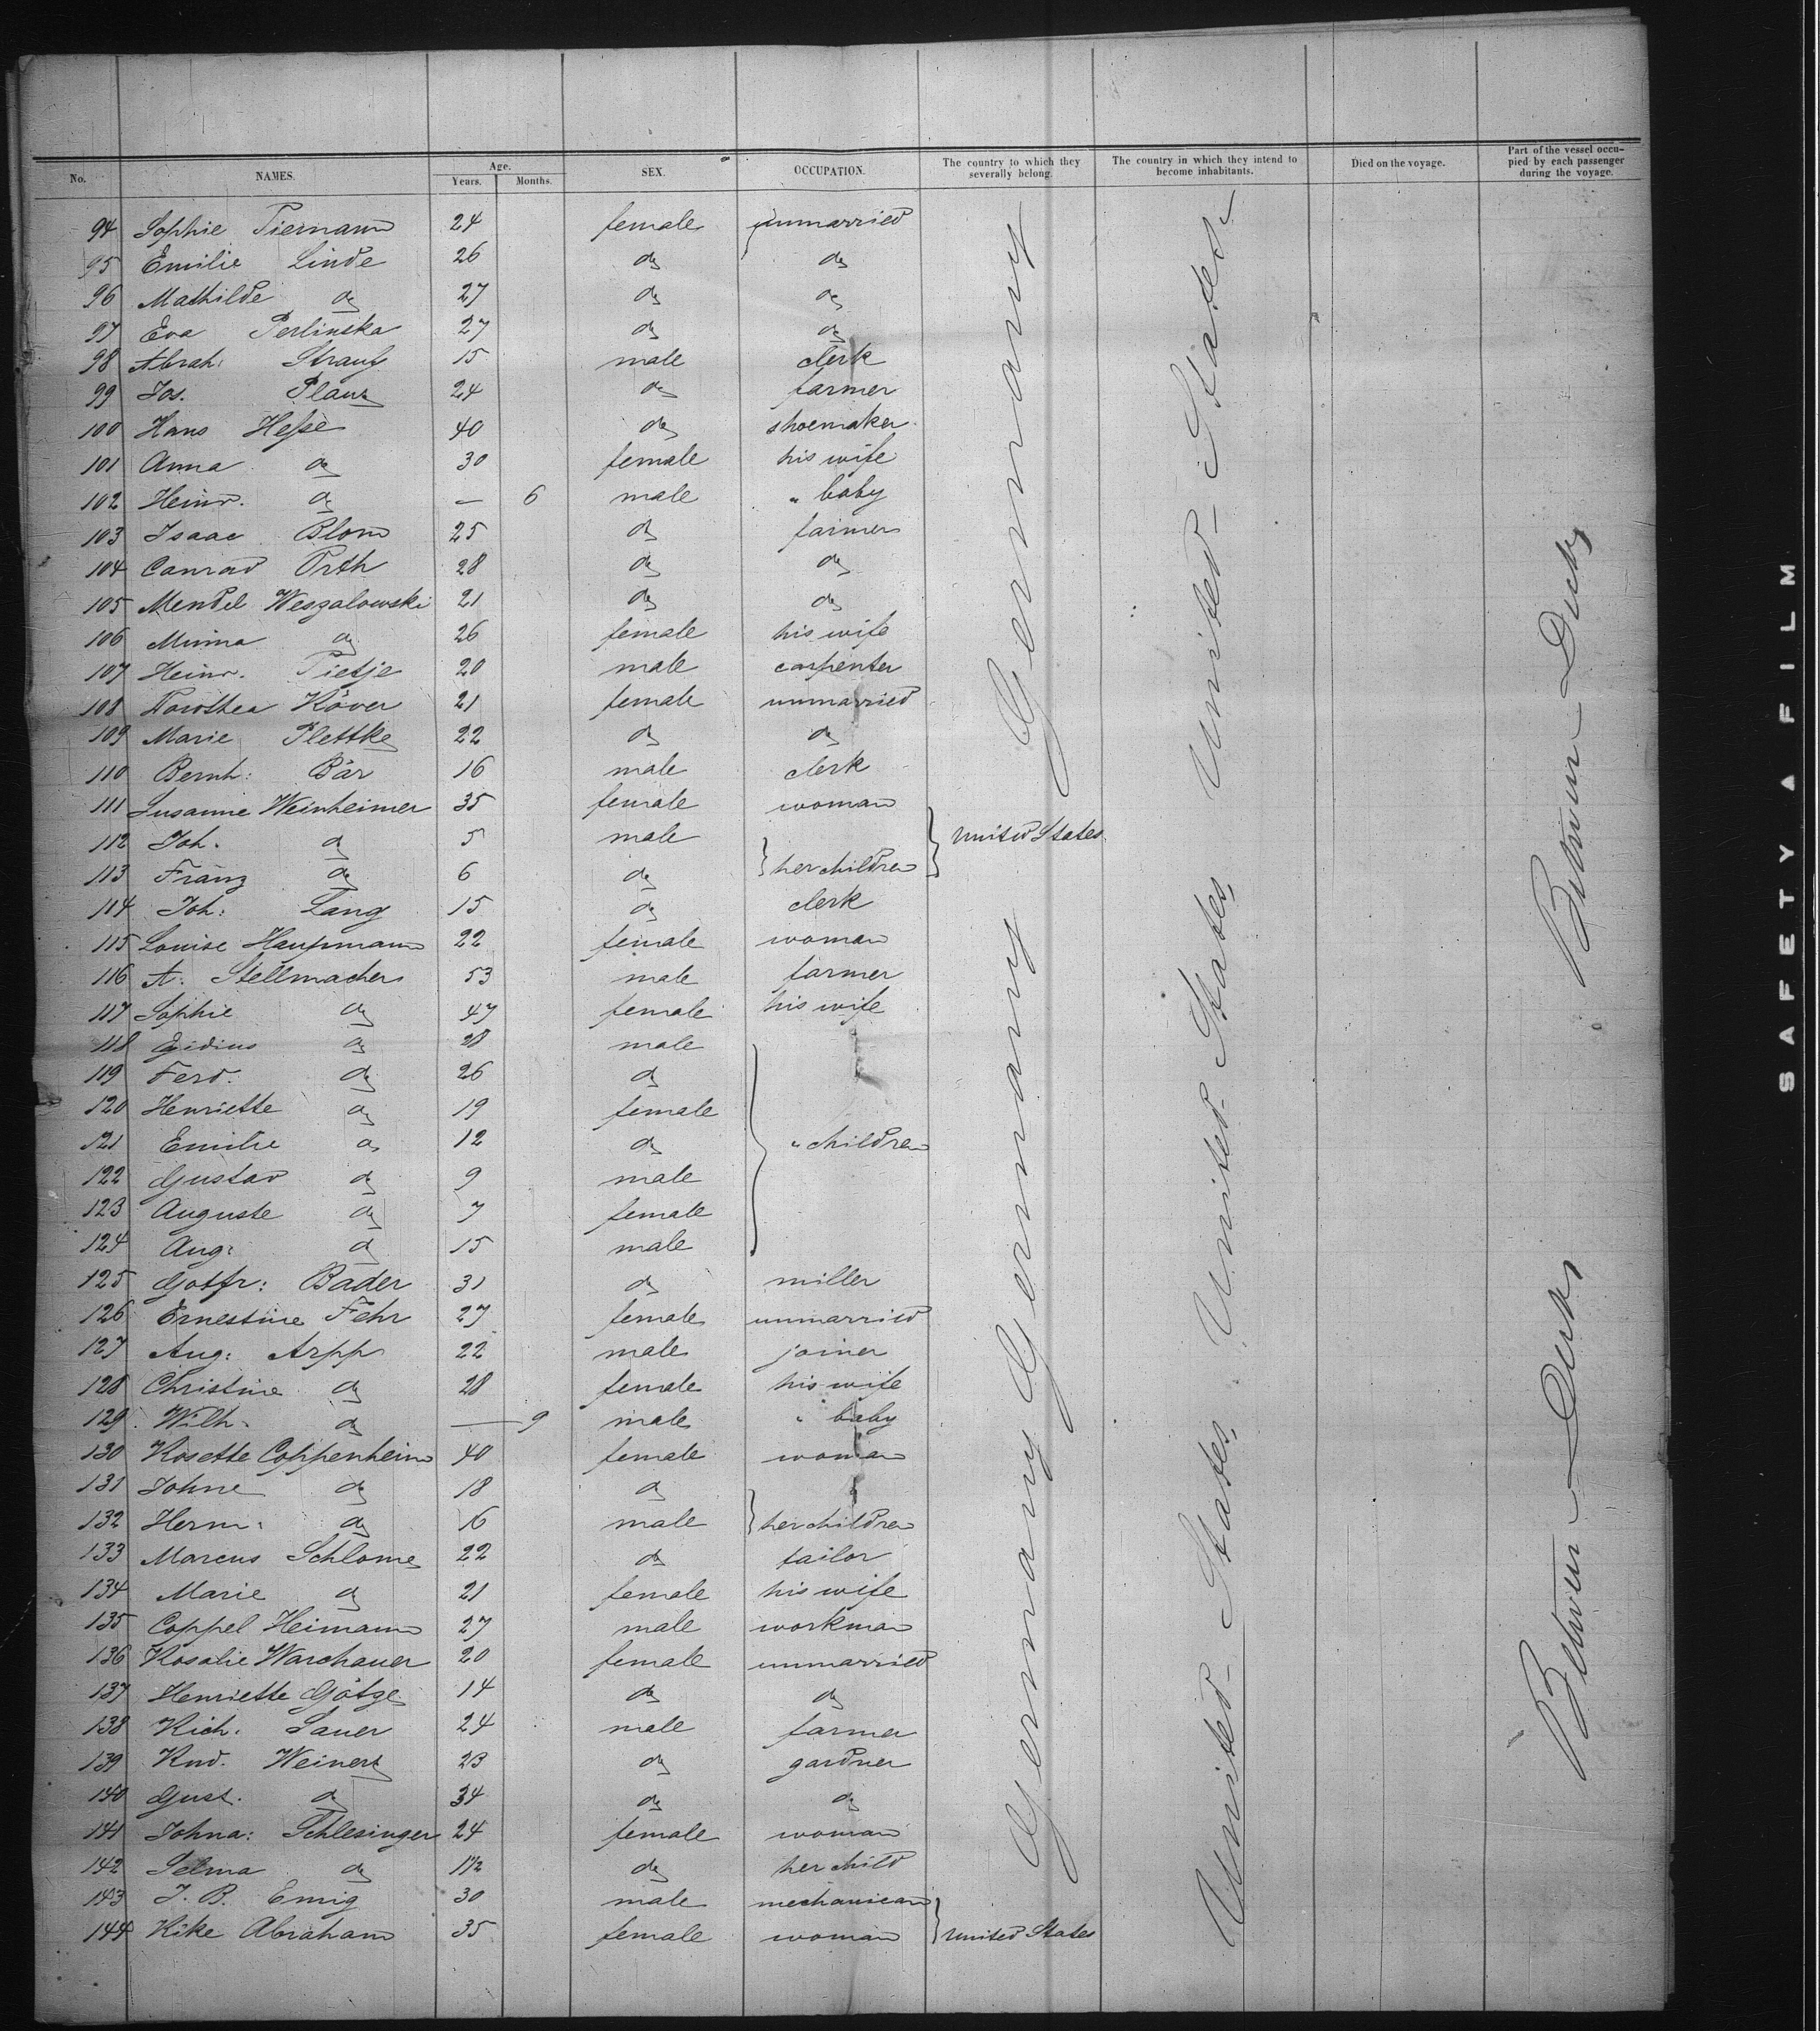 No. NAMES. Age. Years. Months. SEX. OCCUPATION. The country to which they severally belong. The country in which they intend to become inhabitants. Died on the voyage. Part of the vessel occupied by each passenger during the voyage.
94 Sophie Tiemann 24 female unmarried
95 Emilie Linde 26 do do
96 Mathilde do 27 do do
97 Eva Perlinska 27 do do
98 Abrah: Strauß 15 male clerk
99 Jos. 24 do farmer
100 Hans Heße 40 do shoemaker
101 Anna do 30 female his wife
102 Heinr. do — 6 male " baby
103 Isaac Blom 25 do farmer
104 Conrad Orth 28 do do
105 Mendel Weszalowski 21 do do
106 Minna do 26 female his wife
107 Heinr. Tietje 20 male carpenter
108 Dorothea Köver 21 female unmarried
109 Marie Plettke 22 do do
110 Bernh: Bär 16 male clerk
111 Susanne Weinheimer 35 female woman
112 Joh. do 5 male United States
113 Franz do 6 do her children
114 Joh: Lang 15 do clerk
115 Louise Haupmann 22 female woman
116 A. Stellmacher 53 male farmer
117 Sophie do 47 female his wife
118 Egidius do 28 male
119 Ferd. do 26 do
120 Henriette do 19 female
121 Emilie do 12 do " children
122 Gustav do 9 male
123 Auguste do 7 female
124 Aug: do 15 male
125 Gotfr: Bader 31 do miller
126 Ernestine Fehr 27 female unmarried
127 Aug: Arpp 22 male joiner
128 Christine do 28 female his wife
129 Wilh. do — 9 male " baby
130 Rosette Coppenheim 40 female woman
131 Johne do 18 do
132 Herm: do 16 male her children
133 Marcus Schlome 22 do tailor
134 Marie do 21 female his wife
135 Coppel Heimann 27 male workman
136 Rosalie Warchauer 20 female unmarried
137 Henriette Götze 14 do do
138 Rich. Sauer 24 male farmer
139 Rud. Weinert 23 do gardner
140 Gust. do 34 do do
141 Johna: Schlesinger 24 female woman
142 Selma do 1½ do her child
143 J. B. Emig 30 male mechanican
144 Rike Abraham 35 female woman United States
Germany Germany Germany
United States United States United States
Between Decks Between Decks
SAFETY A FILM